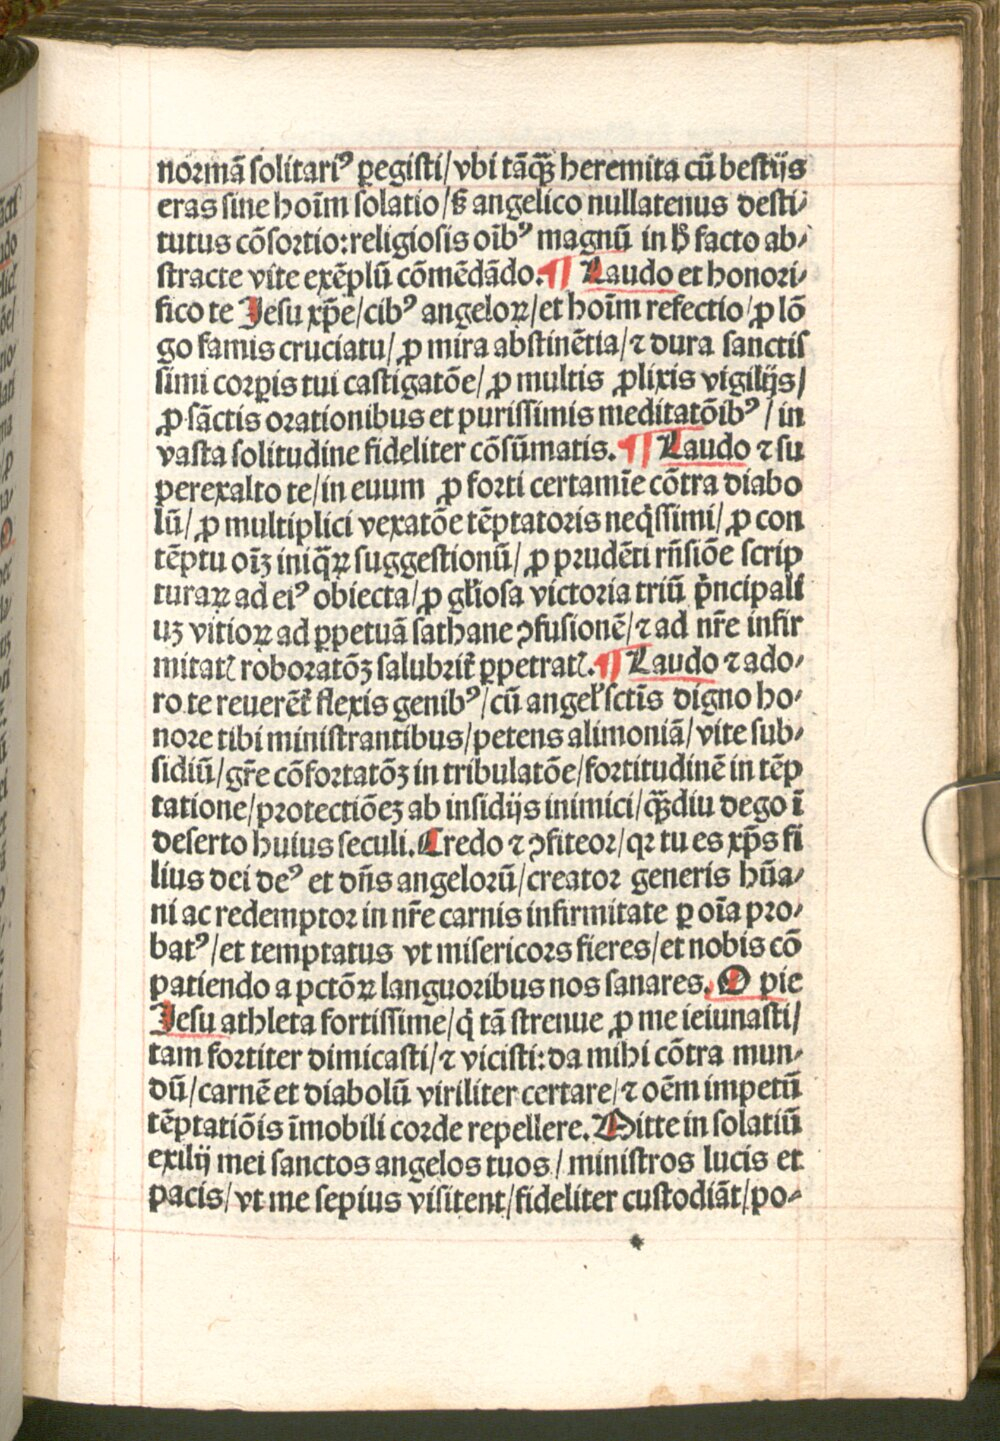 normā solitariꝰ ꝑegisti/vbi tāqꝫ heremita cū bestijs
eras sine hoīm solatio/sꝫ angelico nullatenus desti⸗
tutus cōsortio:religiosis oībꝰ magnū in hͦ facto ab⸗
stracte vite exēplū cōmēdādo. ¶ Laudo et honori⸗
fico te Jesu xp̄e/cibꝰ angeloꝝ/et hoīm refectio/ꝓ lō
go famis cruciatu/ꝓ mira abstinētia/⁊ dura sanctis
simi corꝑis tui castigatōe/ꝓ multis ꝓlixis vigilijs/
ꝓ sāctis orationibus et purissimis meditatōibꝰ/in
vasta solitudine fideliter cōsūmatis. ¶ Laudo ⁊ su
perexalto te/in euum ꝓ forti certamīe cōtra diabo
lū/ꝓ multiplici vexatōe tēptatoris neqͥssimi/ꝓ con
tēptu oīꝫ iniqͣꝝ suggestionū/ꝓ prudēti rn̄siōe scrip
turaꝝ ad eiꝰ obiecta/ꝓ gl̄iosa victoria triū pͥncipali
uꝫ vitioꝝ ad ꝑpetuā sathane ꝯfusionē/⁊ ad nr̄e infir
mitatꝭ roboratōꝫ salubrit̄ ꝑpetratꝭ. ¶ Laudo ⁊ ado⸗
ro te reuerēt̄ flexis genibꝰ/cū angel̄ sctīs digno ho⸗
nore tibi ministrantibus/petens alimoniā/vite sub⸗
sidiū/gr̄e cōfortatōꝫ in tribulatōe/fortitudinē in tēp
tatione/protectiōeꝫ ab insidijs inimici/qꝫdiu dego ī
deserto huius seculi. Credo ⁊ ꝯfiteor/qꝛ tu es xp̄s fi
lius dei deꝰ et dn̄s angelorū/creator generis hūa⸗
ni ac redemptor in nr̄e carnis infirmitate ꝑ oīa pro⸗
batꝰ/et temptatus vt misericors fieres/et nobis cō
patiendo a pctōꝝ languoribus nos sanares. O pie
Jesu athleta fortissime/qͥ tā strenue ꝓ me ieiunasti/
tam fortiter dimicasti/⁊ vicisti:da mihi cōtra mun⸗
dū/carnē et diabolū viriliter certare/⁊ oēm impetū
tēptatiōis īmobili corde repellere. Mitte in solatiū
exilij mei sanctos angelos tuos/ministros lucis et
pacis/vt me sepius visitent/fideliter custodiāt/po⸗